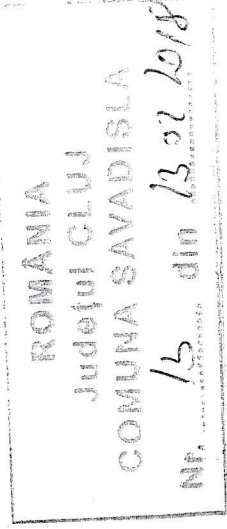 ROMÂNIA
Județul CLUJ
COMUNA SAVADISLA
Nr. 13 din 13 02 2018